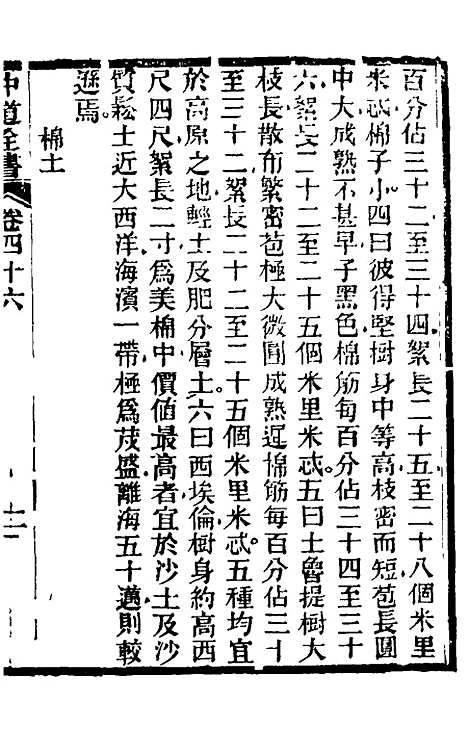 百分佔三十二至三十四絮長二十五至二十八個米里
米忒棉子小四曰彼得堅樹身中等高枝密而短苞長圓
中大成熟不甚早子黑色棉筋每百分佔三十四至三十
六絮長二十二至二十五個米里米忒五曰士魯提樹大
枝長散布繁密苞極大微圓成熟遲棉筋每百分佔三十
至三十二絮長二十二至二十五個米里米忒五種均宜
於高原之地輕土及肥分層土六曰西埃倫樹身約高西
尺四尺絮長二寸爲美棉中價值最高者宜於沙土及沙
質鬆土近大西洋海濱一帶極爲茂盛離海五十邁則較
遜焉
棉土
中道全書
卷四十六